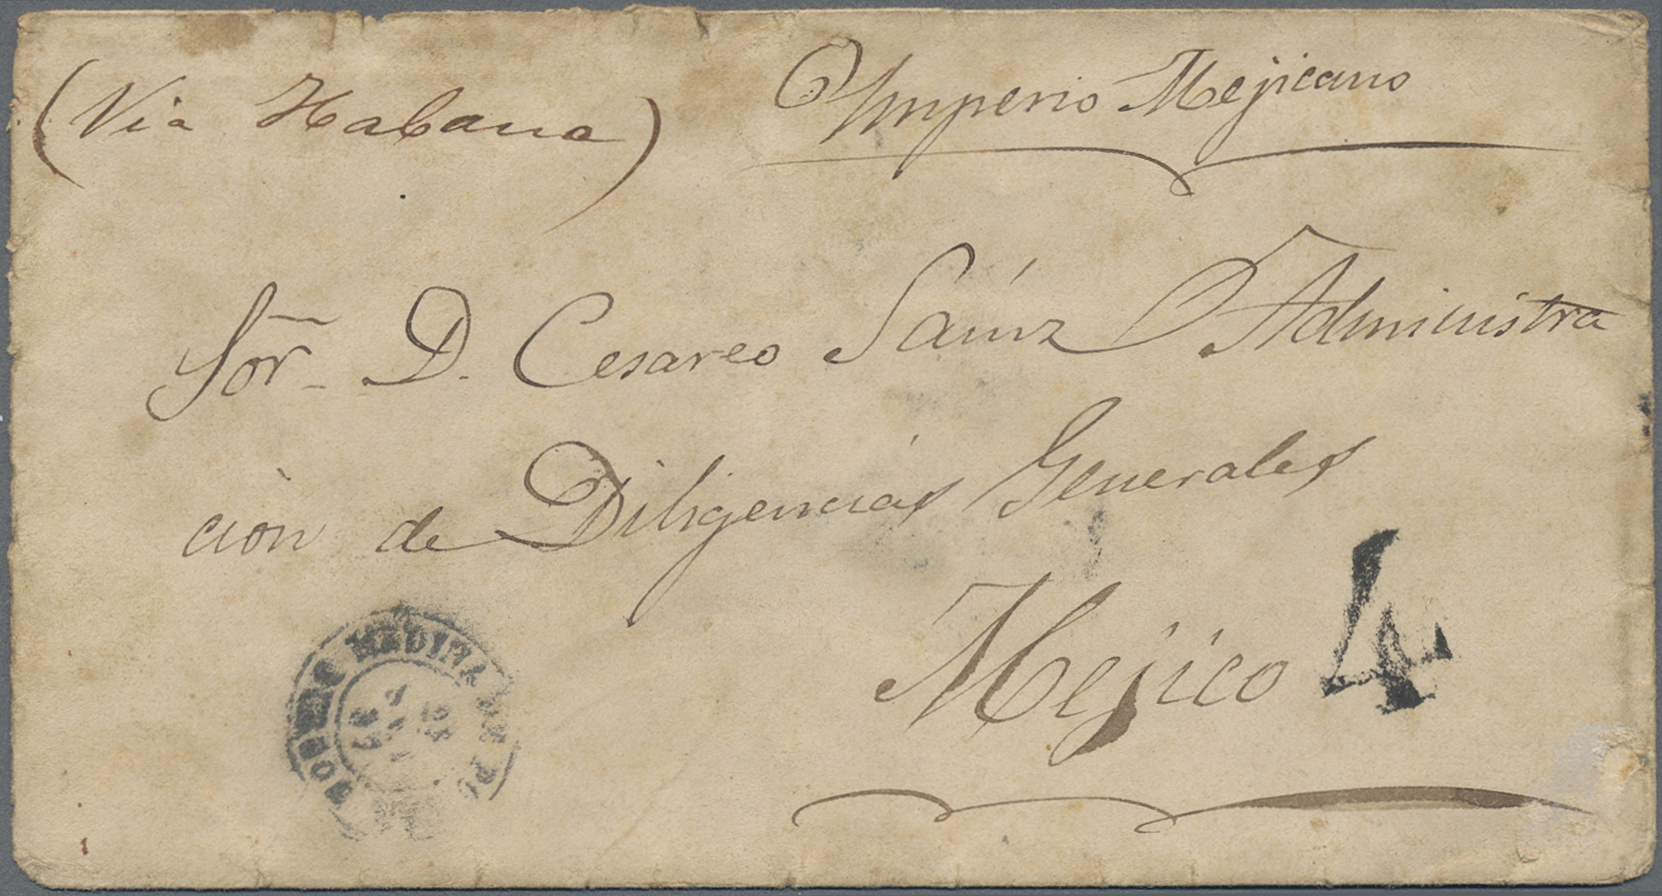 (Via Habana)
Imperio Mejicano
Sor. D. Cesareo Saínz Administra
ciòn de Diligencias Generales
Mejico
4
MEDINA